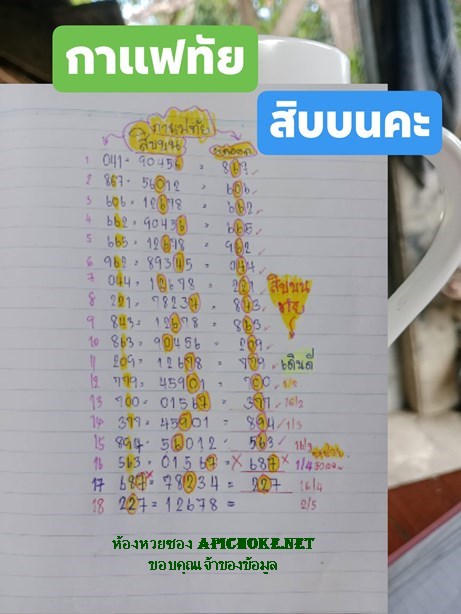 กาแฟทัย
สิบบนคะ
กาแฟทัย
สิบบน
1 041 = 90456 = 867 ✓
2 867 = 56012 = 606 ✓
3 606 = 12678 = 662 ✓
4 662 = 90456 = 665 ✓
5 665 = 12678 = 962 ✓
6 962 = 89345 = 044 ✓
7 044 = 12678 = 221 ✓
สิบบน
8 221 = 78234 = 843 ✓
9 843 = 12678 = 863 ✓
10 863 = 90456 = 209 ✓
11 209 = 12678 = 779 ✓ เดินดี
12 779 = 45901 = 700
13 700 = 01567 = 377 16/2
14 377 = 45901 = 894 1/3
15 894 = 56012 = 563 16/3
16 563 = 01567 = × 687 × 1/4
17 687 × = 78234 = 227 16/4
18 227 = 12678 = 2/5
ห้องหวยซอง APICHOKE.NET
ขอบคุณเจ้าของข้อมูล